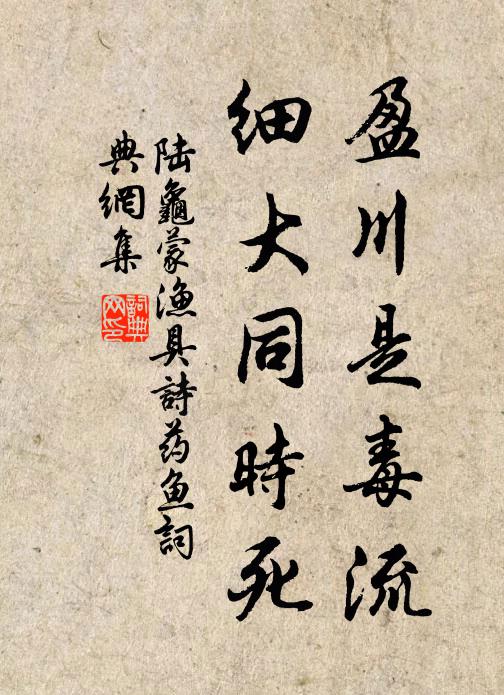 盈川是毒流
细大同時死
陆龜蒙漁具詩药鱼詞
典網集
詞典网印